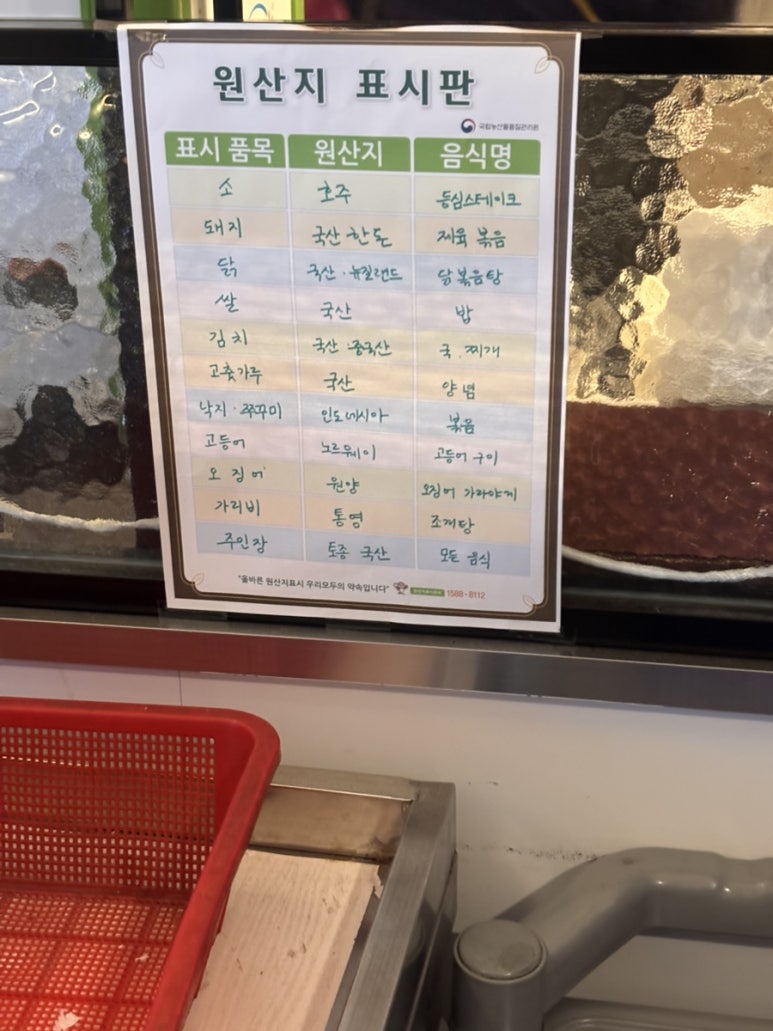 원산지 표시판
국립농산물품질관리원
표시 품목 원산지 음식명
소 호주 등심스테이크
돼지 국산 한돈 제육 볶음
닭 국산 · 뉴질랜드 닭볶음탕
쌀 국산 밥
김치 국산 · 중국산 국 . 찌개
고춧가루 국산 양념
낙지 · 쭈꾸미 인도네시아 볶음
고등어 노르웨이 고등어 구이
오징어 원양 오징어 가라아게
가리비 통영 조개탕
주인장 토종 국산 모든 음식
"올바른 원산지표시 우리모두의 약속입니다" 1588-8112